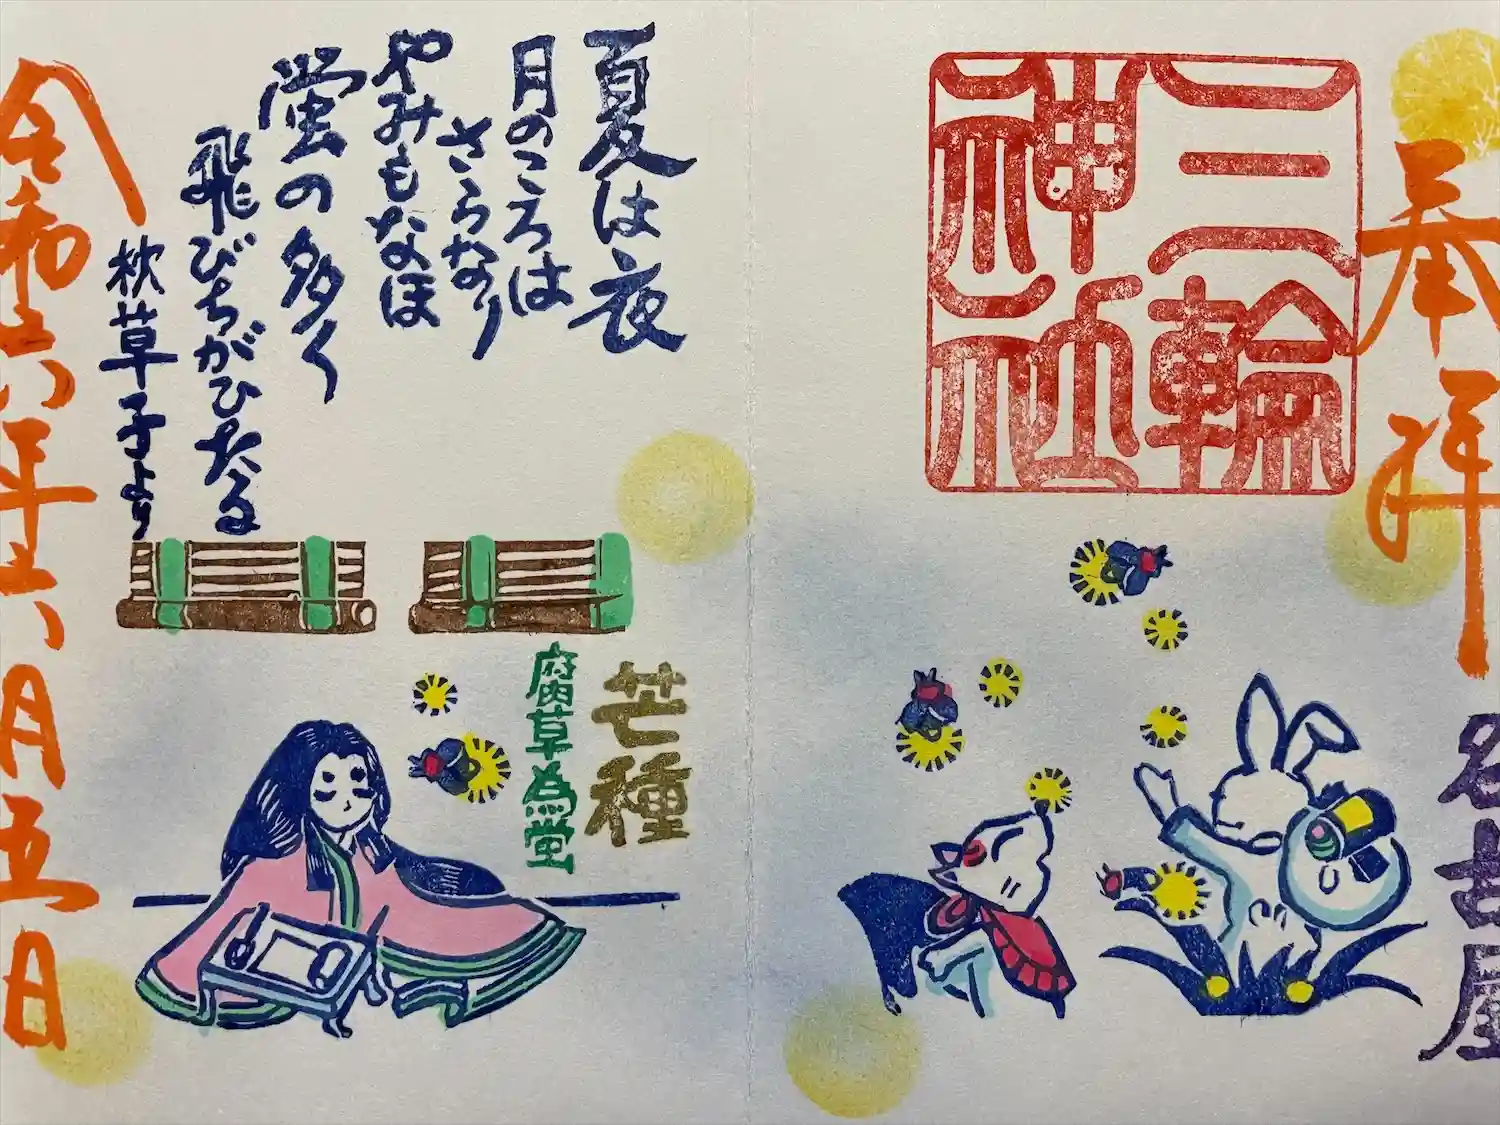 奉拝
名古屋
三輪
神社
夏は夜
月のころは
さらなり
やみもなほ
蛍の多く
飛びちがひたる
枕草子より
芒種
腐草為螢
令和六年六月五日